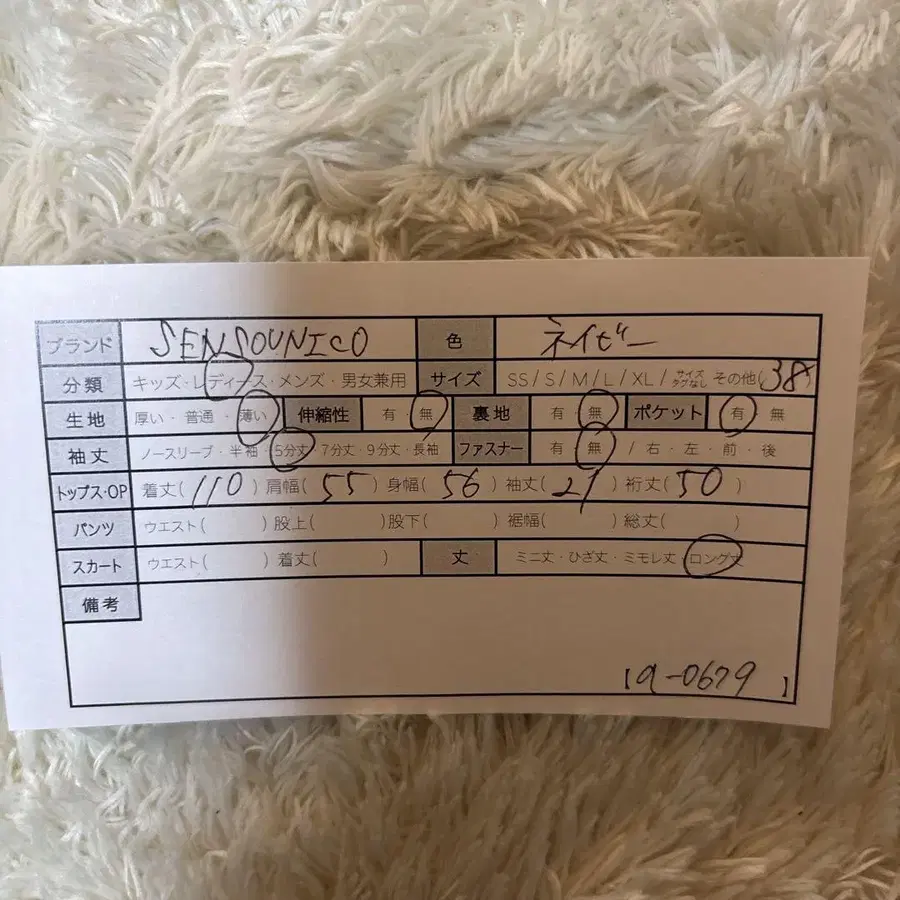 ブランド SENSOUNICO 色 ネイビー
分類 キッズ・レディース・メンズ・男女兼用 サイズ SS/S/M/L/XL/サイズタグなし その他(38)
生地 厚い・普通・薄い 伸縮性 有・無 裏地 有・無 ポケット 有・無
袖丈 ノースリーブ・半袖・5分丈・7分丈・9分丈・長袖 ファスナー 有・無 /右・左・前・後
トップス・OP 着丈(110)肩幅(55)身幅(56)袖丈(21)裄丈(50)
パンツ ウエスト( )股上( )股下( )裾幅( )総丈( )
スカート ウエスト( )着丈( ) 丈 ミニ丈・ひざ丈・ミモレ丈・ロング丈
備考
【a-0679】